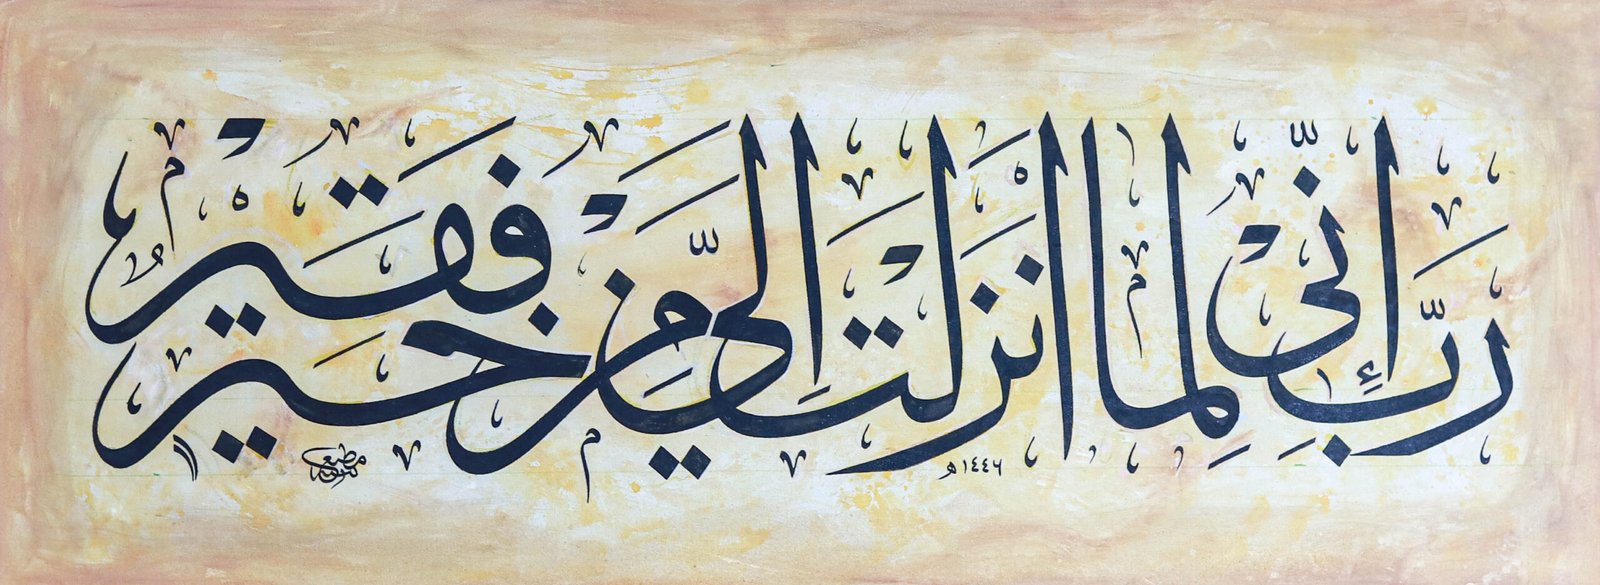 رَبِّ إِنِّي لِمَا أَنْزَلْتَ إِلَيَّ مِنْ خَيْرٍ فَقِيرٌ
١٤٤٦هـ